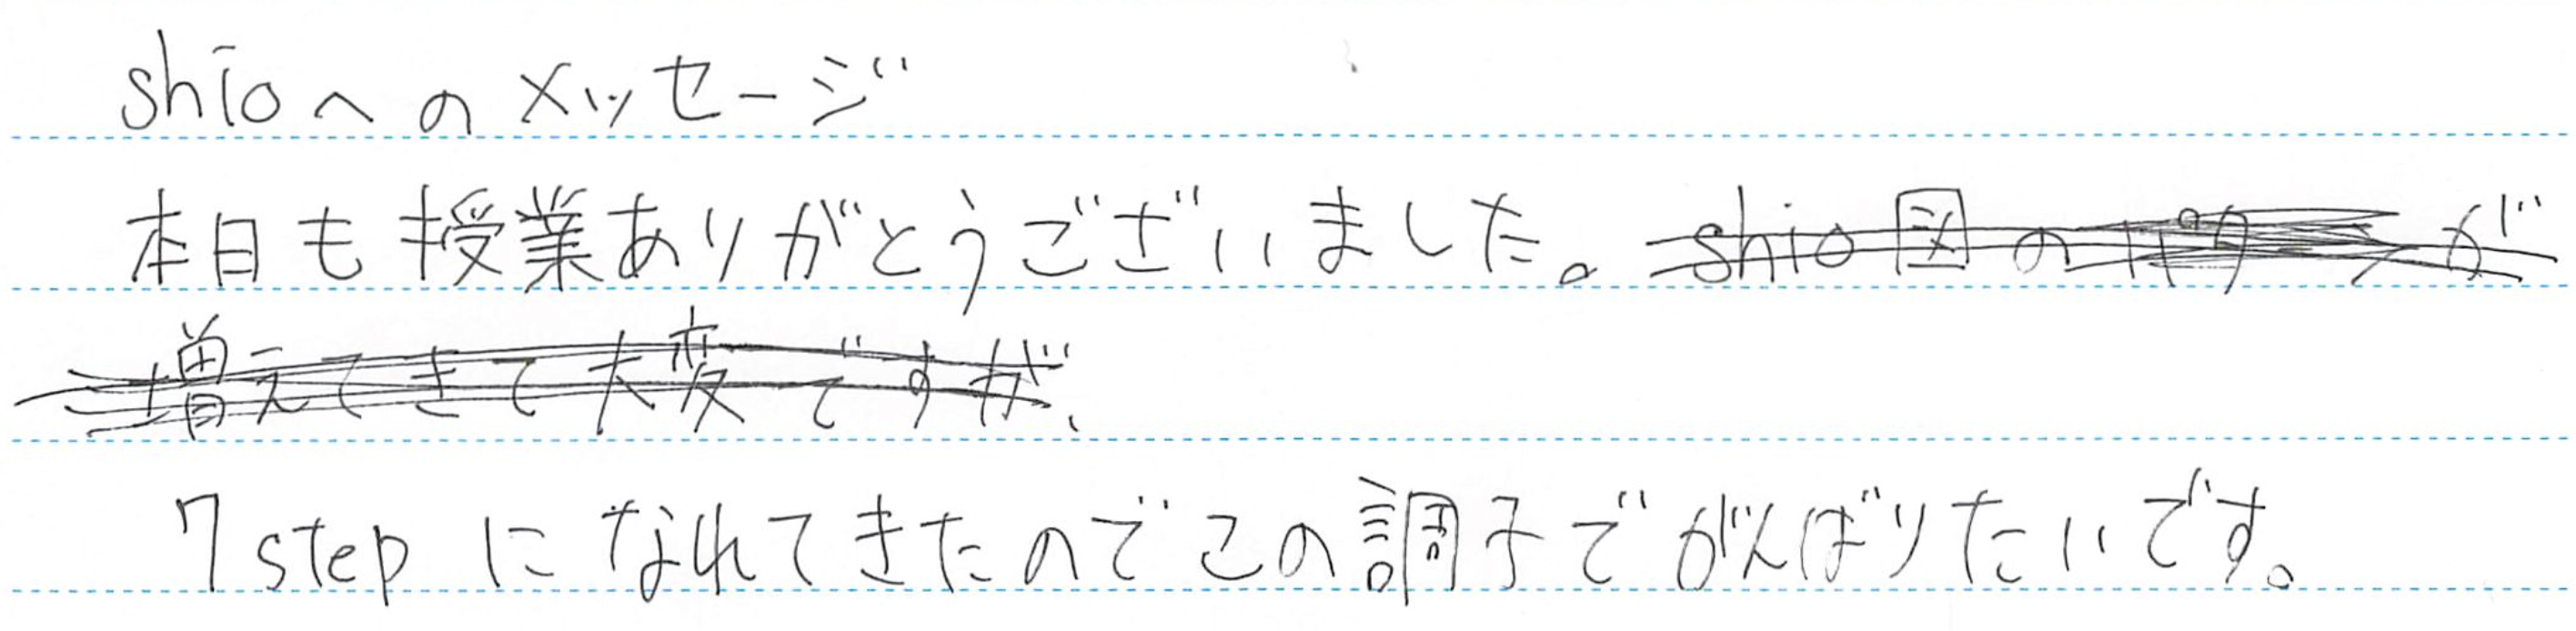 shioへのメッセージ
本日も授業ありがとうございました。shio図のパターンが
増えてきて大変ですが、
7stepになれてきたのでこの調子でがんばりたいです。